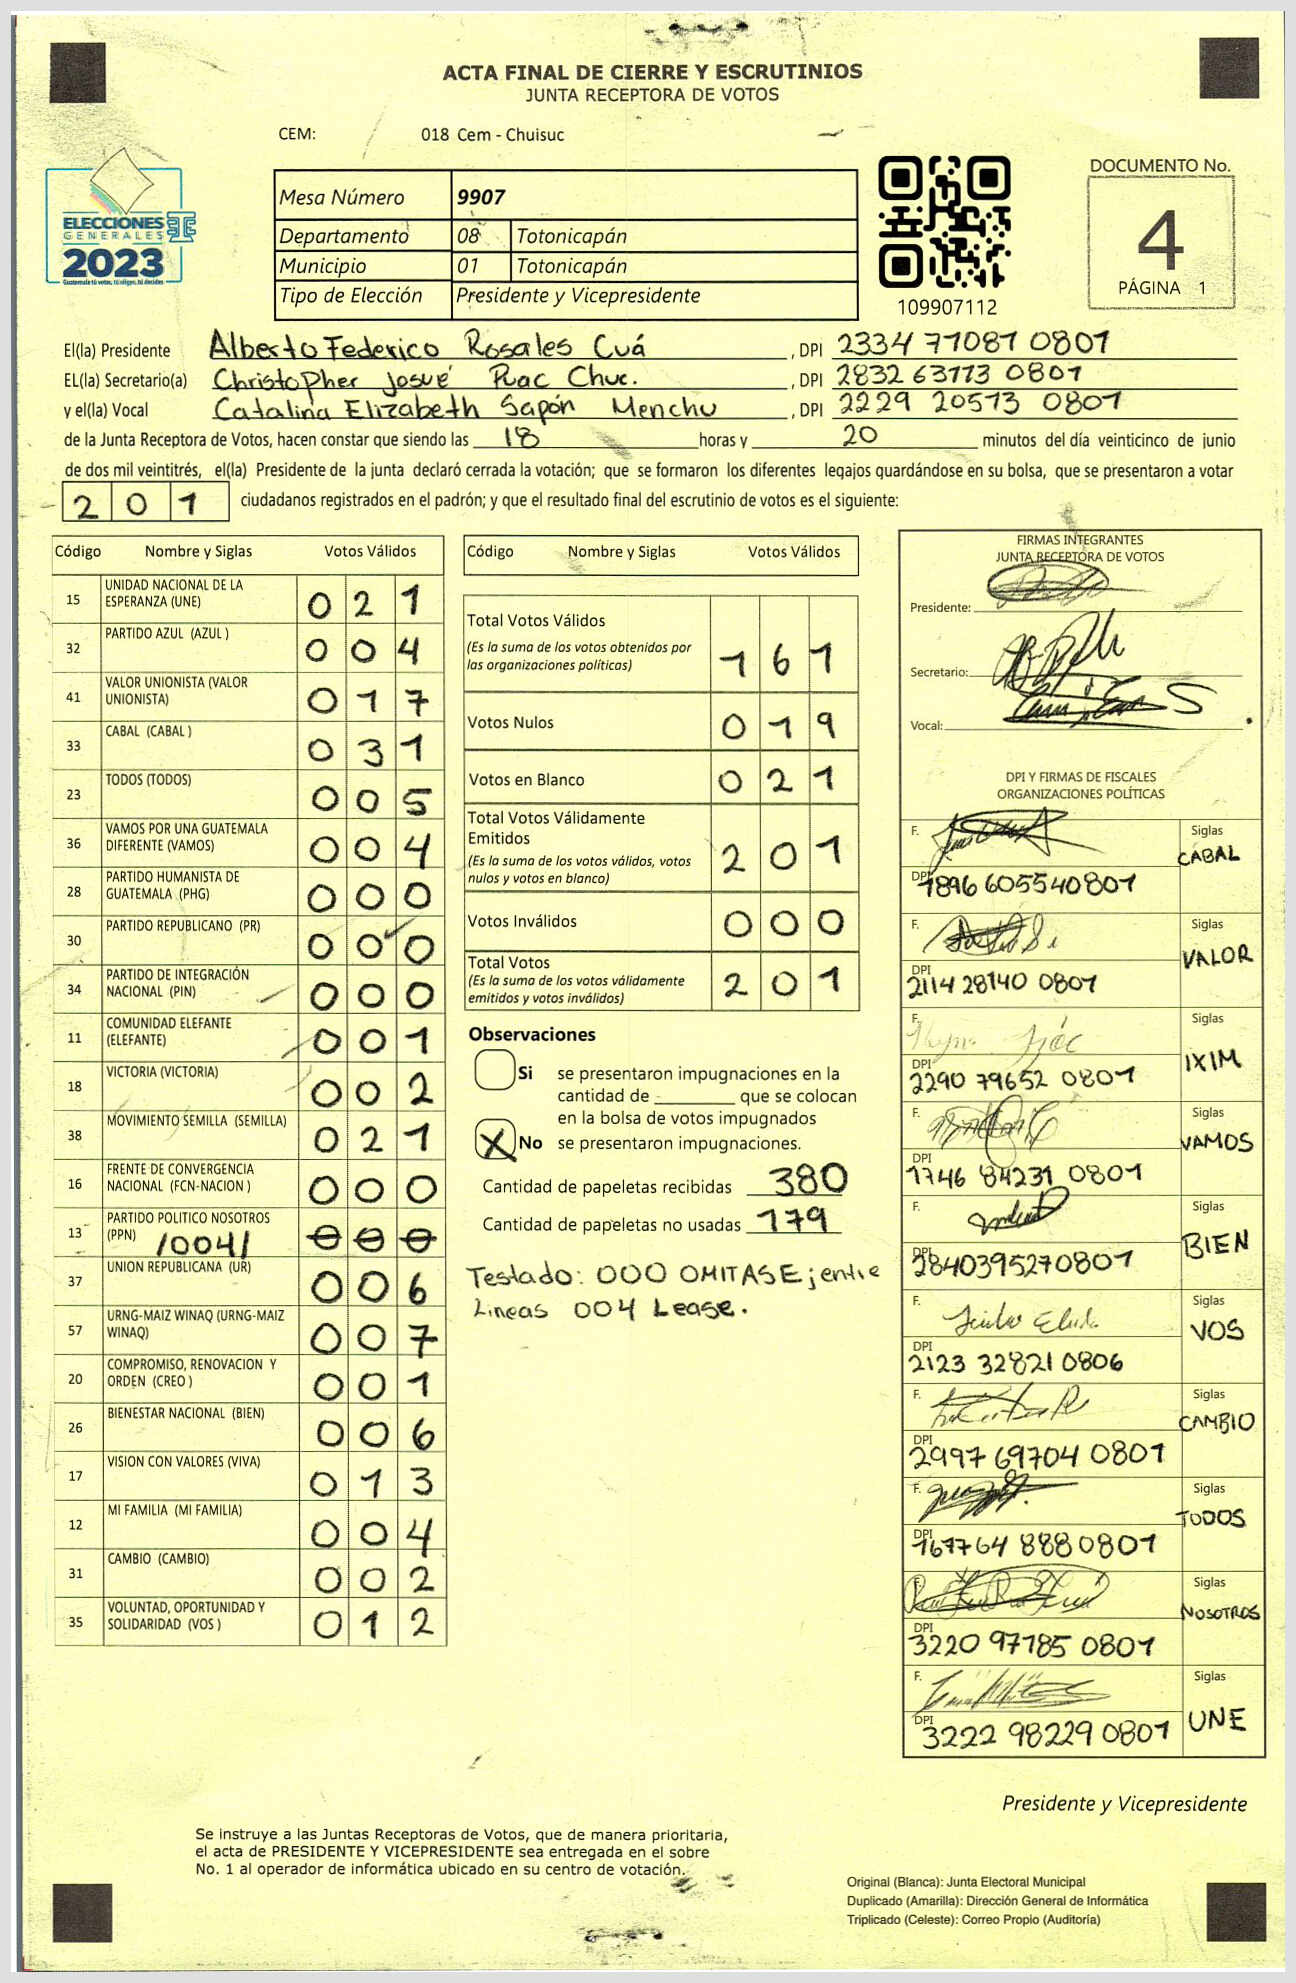 ACTA FINAL DE CIERRE Y ESCRUTINIOS
JUNTA RECEPTORA DE VOTOS
CEM: 018 Cem - Chuisuc
ELECCIONES
GENERALES
2023
Guatemala tú votas, tú eliges, tú decides
Mesa Número 9907
Departamento 08 Totonicapán
Municipio 01 Totonicapán
Tipo de Elección Presidente y Vicepresidente
109907112
DOCUMENTO No.
4
PÁGINA 1
El(la) Presidente Alberto Federico Rosales Cuá , DPI 2334 77087 0801
EL(la) Secretario(a) Christopher Josué Puac Chuc. , DPI 2832 63773 0801
y el(la) Vocal Catalina Elizabeth Sapón Menchu , DPI 2229 20573 0801
de la Junta Receptora de Votos, hacen constar que siendo las 18 horas y 20 minutos del día veinticinco de junio
de dos mil veintitrés, el(la) Presidente de la junta declaró cerrada la votación; que se formaron los diferentes legajos guardándose en su bolsa, que se presentaron a votar
201 ciudadanos registrados en el padrón; y que el resultado final del escrutinio de votos es el siguiente:
Código Nombre y Siglas Votos Válidos
15 UNIDAD NACIONAL DE LA ESPERANZA (UNE) 0 2 1
32 PARTIDO AZUL (AZUL ) 0 0 4
41 VALOR UNIONISTA (VALOR UNIONISTA) 0 1 7
33 CABAL (CABAL ) 0 3 1
23 TODOS (TODOS) 0 0 5
36 VAMOS POR UNA GUATEMALA DIFERENTE (VAMOS) 0 0 4
28 PARTIDO HUMANISTA DE GUATEMALA (PHG) 0 0 0
30 PARTIDO REPUBLICANO (PR) 0 0 0
34 PARTIDO DE INTEGRACIÓN NACIONAL (PIN) 0 0 0
11 COMUNIDAD ELEFANTE (ELEFANTE) 0 0 1
18 VICTORIA (VICTORIA) 0 0 2
38 MOVIMIENTO SEMILLA (SEMILLA) 0 2 1
16 FRENTE DE CONVERGENCIA NACIONAL (FCN-NACION ) 0 0 0
13 PARTIDO POLITICO NOSOTROS (PPN) /004/ 0 0 0
37 UNION REPUBLICANA (UR) 0 0 6
57 URNG-MAIZ WINAQ (URNG-MAIZ WINAQ) 0 0 7
20 COMPROMISO, RENOVACION Y ORDEN (CREO ) 0 0 1
26 BIENESTAR NACIONAL (BIEN) 0 0 6
17 VISION CON VALORES (VIVA) 0 1 3
12 MI FAMILIA (MI FAMILIA) 0 0 4
31 CAMBIO (CAMBIO) 0 0 2
35 VOLUNTAD, OPORTUNIDAD Y SOLIDARIDAD (VOS ) 0 1 2
Código Nombre y Siglas Votos Válidos
Total Votos Válidos 1 6 1
(Es la suma de los votos obtenidos por
las organizaciones políticas)
Votos Nulos 0 1 9
Votos en Blanco 0 2 1
Total Votos Válidamente
Emitidos 2 0 1
(Es la suma de los votos válidos, votos
nulos y votos en blanco)
Votos Inválidos 0 0 0
Total Votos 2 0 1
(Es la suma de los votos válidamente
emitidos y votos inválidos)
Observaciones
Si se presentaron impugnaciones en la
cantidad de ________ que se colocan
en la bolsa de votos impugnados
X No se presentaron impugnaciones.
Cantidad de papeletas recibidas 380
Cantidad de papeletas no usadas 179
Testado: 000 OMITASE; entre
Lineas 004 Lease.
FIRMAS INTEGRANTES
JUNTA RECEPTORA DE VOTOS
Presidente:
Secretario:
Vocal:
DPI Y FIRMAS DE FISCALES
ORGANIZACIONES POLÍTICAS
F. Siglas CABAL
DPI 1896 60554 0801
F. Siglas VALOR
DPI 2114 28140 0801
F. Siglas IXIM
DPI 2290 79652 0801
F. Siglas VAMOS
DPI 1746 84231 0801
F. Siglas BIEN
DPI 2840395270801
F. Siglas VOS
DPI 2123 32821 0806
F. Siglas CAMBIO
DPI 2997 69704 0801
F. Siglas TODOS
DPI 1677 64 888 0801
F. Siglas NOSOTROS
DPI 3220 97785 0801
F. Siglas UNE
DPI 3222 98229 0801
Presidente y Vicepresidente
Se instruye a las Juntas Receptoras de Votos, que de manera prioritaria,
el acta de PRESIDENTE Y VICEPRESIDENTE sea entregada en el sobre
No. 1 al operador de informática ubicado en su centro de votación.
Original (Blanca): Junta Electoral Municipal
Duplicado (Amarilla): Dirección General de Informática
Triplicado (Celeste): Correo Propio (Auditoría)